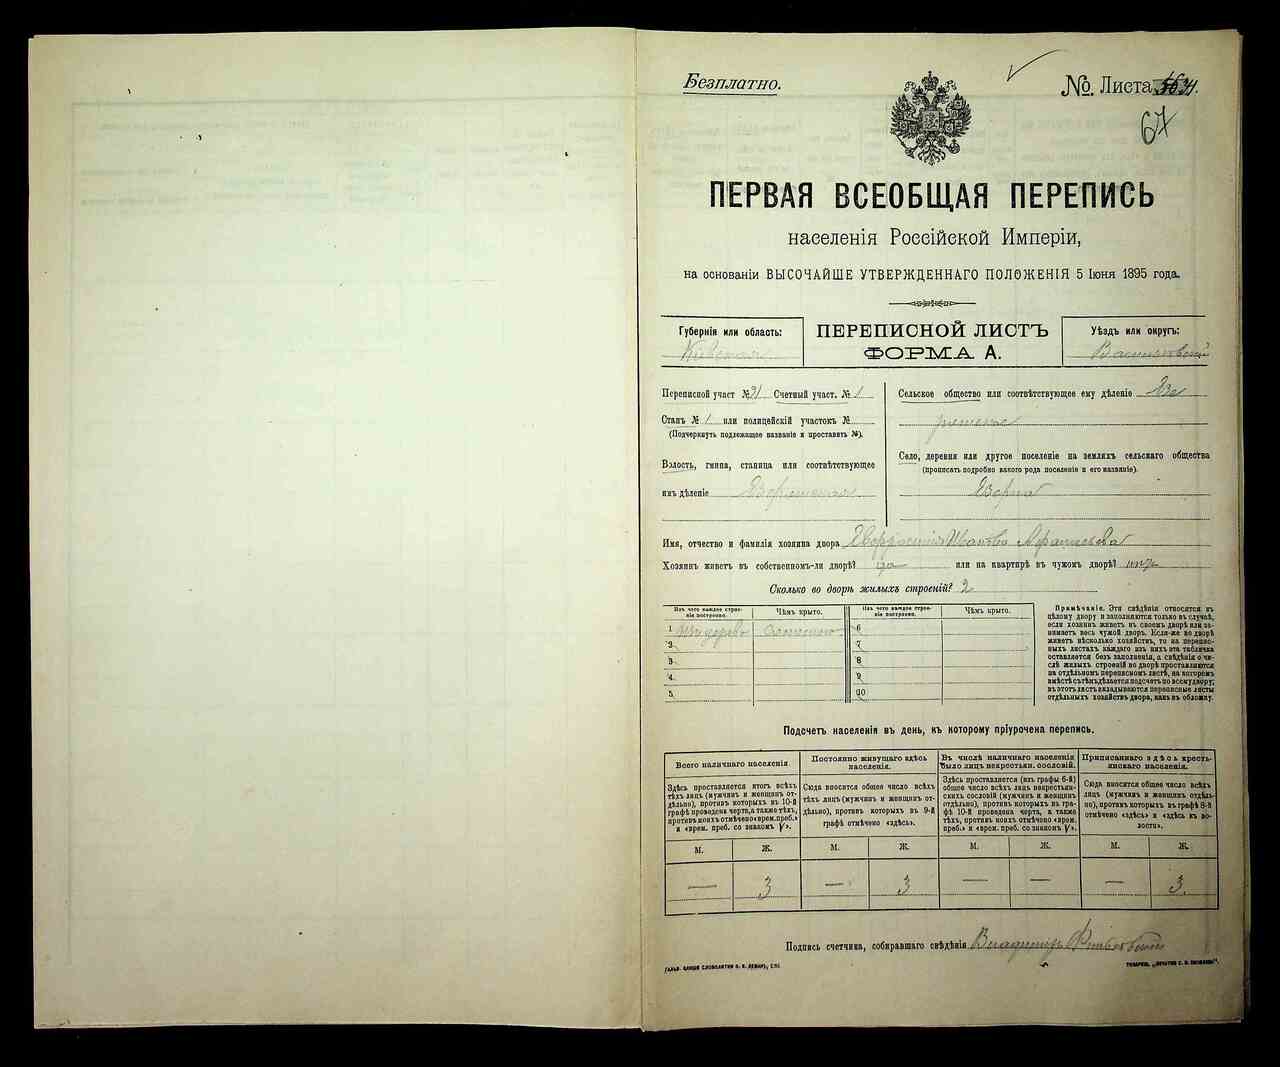 Безплатно.
№. Листа
67
ПЕРВАЯ ВСЕОБЩАЯ ПЕРЕПИСЬ
населенія Россійской Имперіи,
на основаніи ВЫСОЧАЙШЕ УТВЕРЖДЕННАГО ПОЛОЖЕНІЯ 5 Іюня 1895 года.
Губернія или область:
Кіевская
ПЕРЕПИСНОЙ ЛИСТЪ
ФОРМА А.
Уѣздъ или округъ:
Васильковскій
Переписной участ № 21 Счетный участ. № 1
Станъ № 1 или полицейскій участокъ №
(Подчеркнуть подлежащее названіе и проставить №).
Волость, гмина, станица или соотвѣтствующее
имъ дѣленіе
Сельское общество или соотвѣтствующее ему дѣленіе
Село, деревня или другое поселеніе на земляхъ сельскаго общества
(прописать подробно какого рода поселеніе и его названіе).
Имя, отчество и фамилія хозяина двора
Хозяинъ живетъ въ собственномъ-ли дворѣ? да или на квартирѣ въ чужомъ дворѣ? нѣтъ
Сколько во дворѣ жилыхъ строеній? 2
Изъ чего каждое строе-
ніе построено.
Чѣмъ крыто.
Изъ чего каждое строе-
ніе построено.
Чѣмъ крыто.
1 изъ дерева соломою 6
2 7
3 8
4 9
5 10
Примѣчаніе. Эти свѣдѣнія относятся къ
цѣлому двору и заполняются только въ случаѣ,
если хозяинъ живетъ въ своемъ дворѣ или за-
нимаетъ весь чужой дворъ. Если-же во дворѣ
живетъ нѣсколько хозяйствъ, то на перепис-
ныхъ листахъ каждаго изъ нихъ эта табличка
оставляется безъ заполненія, а свѣдѣнія о чи-
слѣ жилыхъ строеній во дворѣ проставляются
на отдѣльномъ переписномъ листѣ, на которомъ
вмѣстѣ съ тѣмъ дѣлается подсчетъ по всему двору;
въ этотъ листъ вкладываются переписные листы
отдѣльныхъ хозяйствъ двора, какъ въ обложку.
Подсчетъ населенія въ день, къ которому пріурочена перепись.
Всего наличнаго населенія
Здѣсь проставляется итогъ всѣхъ
тѣхъ лицъ (мужчинъ и женщинъ от-
дѣльно), противъ которыхъ въ 10-й
графѣ проведена черта, а также тѣхъ,
противъ коихъ отмѣчено «врем. преб.»
и «врем. преб. со знакомъ V».
Постоянно живущаго здѣсь
населенія.
Сюда вносится общее число всѣхъ
тѣхъ лицъ (мужчинъ и женщинъ от-
дѣльно), противъ которыхъ въ 9-й
графѣ отмѣчено «здѣсь».
Въ числѣ наличнаго населенія
было лицъ некрестьян. сословій.
Здѣсь проставляется (изъ графы 6-й)
общее число всѣхъ лицъ некрестьян-
скихъ сословій (мужчинъ и женщинъ
отдѣльно), противъ которыхъ въ гра-
фѣ 10-й проведена черта, а также
тѣхъ, противъ коихъ отмѣчено «врем.
преб.» и «врем. преб. со знакомъ V».
Приписаннаго здѣсь кресть-
янскаго населенія.
Сюда вносится общее число всѣхъ
лицъ (мужчинъ и женщинъ отдѣль-
но), противъ которыхъ въ графѣ 8-й
отмѣчено «здѣсь» и «здѣсь къ во-
лости».
М. Ж. М. Ж. М. Ж. М. Ж.
— 3 — 3 — — — 3.
Подпись счетчика, собиравшаго свѣдѣнія Владиміръ